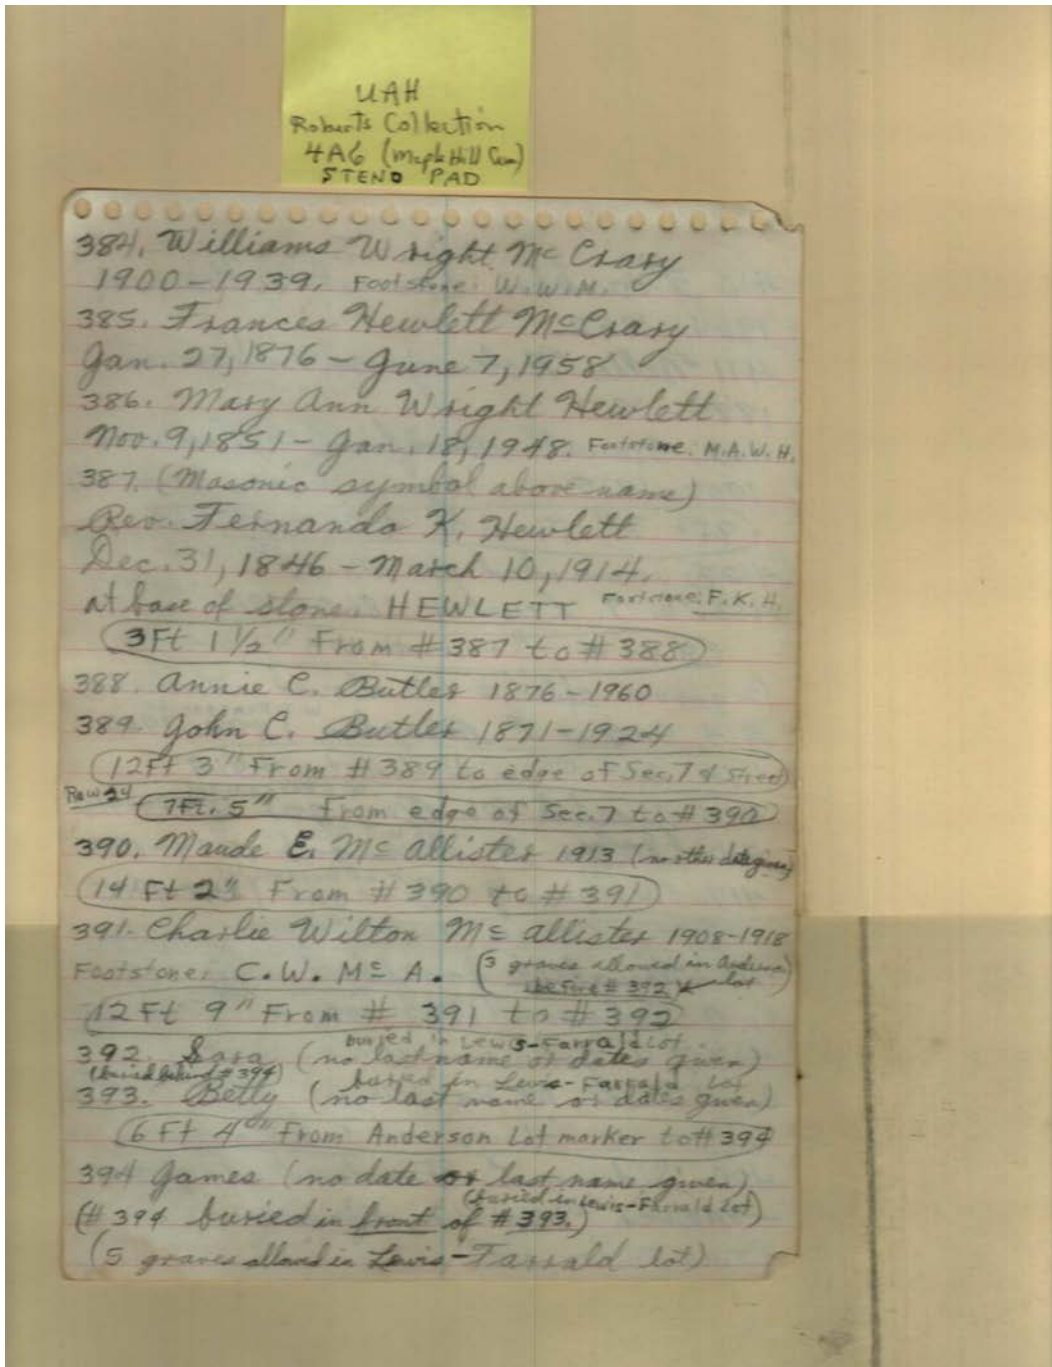 UAH
Roberts Collection
4A6 (Maple Hill Cem)
STENO PAD
384. Williams Wright McCrary
1900-1939. Footstone: W.W.M.
385. Frances Hewlett McCrary
Jan. 27, 1876 - June 7, 1958
386. Mary Ann Wright Hewlett
Nov. 9, 1851 - Jan. 18, 1948. Footstone: M.A.W.H.
387. (Masonic symbol above name)
Rev. Fernando K. Hewlett
Dec. 31, 1846 - March 10, 1914.
At base of stone: HEWLETT Footstone: F.K.H.
3Ft 1 1/2" From #387 to #388
388. Annie C. Butler 1876-1960
389. John C. Butler 1871-1924
12Ft 3" From #389 to edge of Sec. 7 & Street
Row 24
7Ft. 5" From edge of Sec. 7 to #390
390. Maude E. McAllister 1913 (no other date given)
14 Ft 2" From #390 to #391
391. Charlie Wilton McAllister 1908-1918
Footstone: C.W.McA. (3 graves allowed in Anderson lot
before #392)
12Ft 9" From #391 to #392
buried in Lewis-Farrald Lot
392. Sara (no last name or dates given)
(buried behind #394) buried in Lewis-Farrald Lot
393. Betty (no last name or dates given)
6Ft 4" From Anderson Lot marker to #394
394 James (no date or last name given)
(buried in Lewis-Farrald Lot)
(#394 buried in front of #393.)
(5 graves allowed in Lewis-Farrald lot)